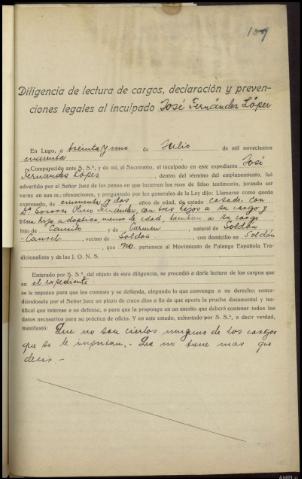 109
Diligencia de lectura de cargos, declaración y preven-
ciones legales al inculpado José Fernández López
En Lugo, a treinta y uno de Julio de mil novecientos
cuarenta
Comparecido ante S. S.ª y de mí, el Secretario, el inculpado en este expediente José
Fernández López, dentro del término del emplazamiento, fué
advertido por el Señor Juez de las penas en que incurren los reos de falso testimonio, jurando ser
veraz en sus manifestaciones, y preguntado por las generales de la Ley dijo: Llamarse como queda
expresado, de cincuenta y dos años de edad, de estado casado, con
D.ª Dolores con tres hijos a su cargo y
una hija adoptiva menor de edad, también a su cargo
hijo de Camilo y de Carmen natural de Soldón
vecino de Soldón con domicilio en Soldón
que no pertenece al Movimiento de Falange Española Tra-
dicionalista y de las J. O. N. S.
Enterado por S. S.ª del objeto de esta diligencia, se procedió a darle lectura de los cargos que
en el expediente
se le imputan para que los conteste y se defienda, alegando lo que convenga a su derecho;
por el Señor Juez un plazo de cinco días a fin de que aporte la prueba documental y testifi-
cal que interese a su defensa, o para que la proponga en un medio que deberá contener todos los
datos necesarios para su práctica de oficio. Y en este estado, exhortado por S. S.ª, a decir verdad,
manifestó: Que no son ciertos ninguno de los cargos
que se le imputan. - Que no tiene mas que
decir. -